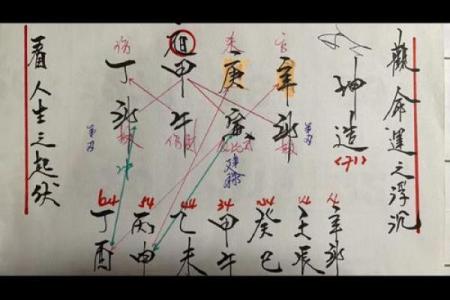 觀命運之浮沉
坤造
<71>
官
辛卯
庚寅
建祿
日
甲午
傷
丁卯
4
辛卯
14
壬辰
24
癸巳
34
甲午
44
乙未
54
丙申
64
丁酉
看人生之起伏